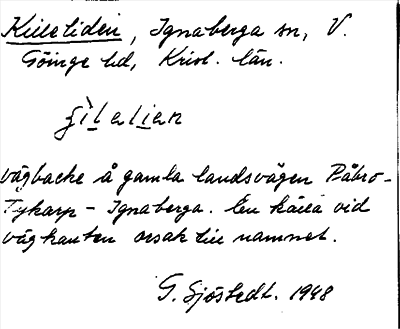 Killeliden, Ignaberga sn, V.
Göinge hd, Krist. län.
vägbacke å gamla landsvägen Råbro-
Tykarp - Ignaberga. En källa vid
vägkanten orsak till namnet.
G. Sjöstedt. 1948